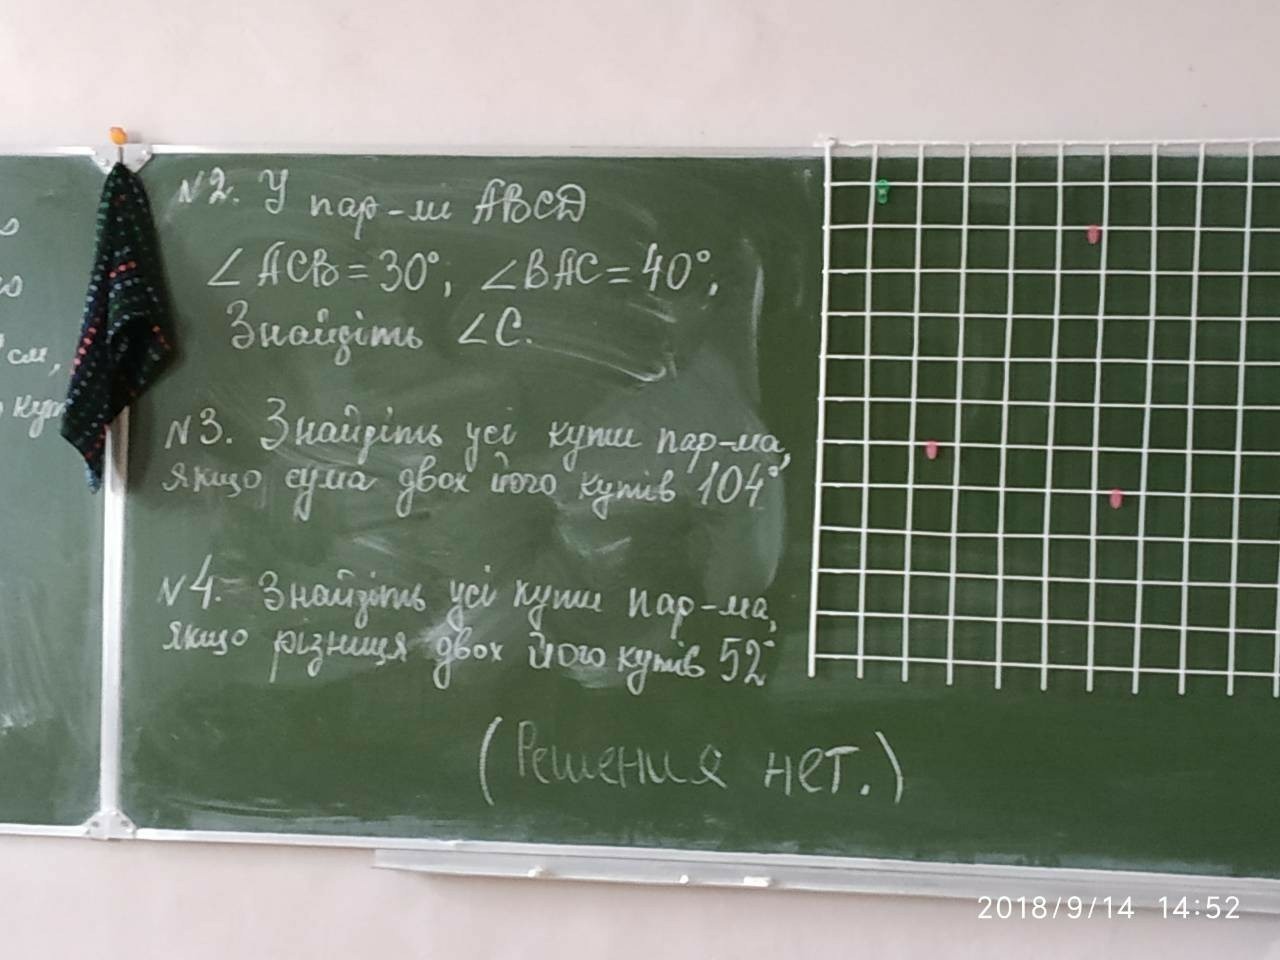 см,
№2. У пар-мі ABCD
∠ACB = 30°, ∠BAC = 40°,
Знайдіть ∠C.
№3. Знайдіть усі кути пар-ма,
якщо сума двох його кутів 104°
№4. Знайдіть усі кути пар-ма,
якщо різниця двох його кутів 52°
(Решения нет.)
2018/9/14 14:52